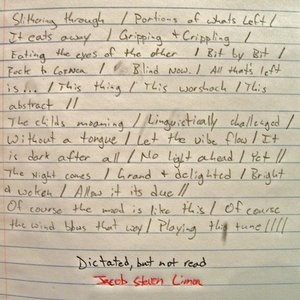 Slithering through / Portions of whats left /
It eats away / Gripping & Crippling /
Eating the eyes of the other / Bit by Bit /
Back to cornea / Blind Now. / All that's left
is... / This thing / This worshack / This
abstract //
The childs moaning / Linguistically challenged /
Without a tongue / Let the vibe flow / It
is dark after all / No light ahead / Yet //
The night comes / Grand & delighted / Bright
& woken / Allow it its due //
Of course the mood is like this / Of course
the wind blows that way / Playing this tune ////
Dictated, but not read
Jacob Steven Limon